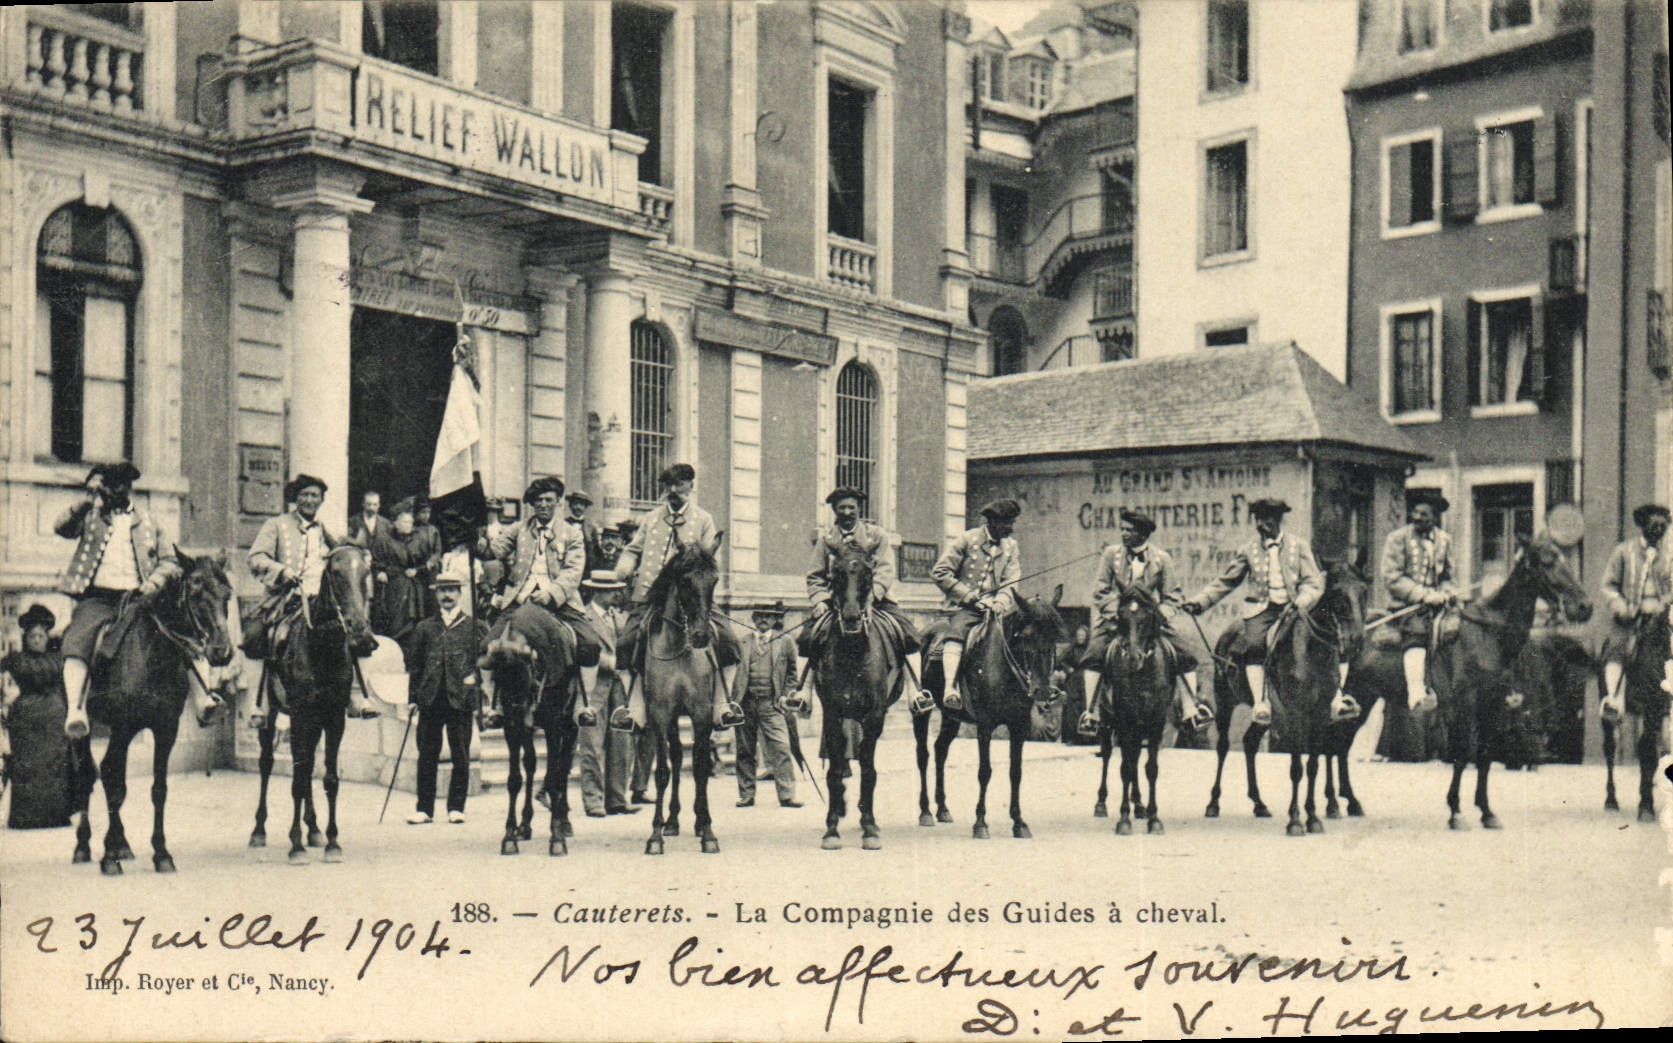 RELIEF WALLON
ENTRÉE
0f 50
AU GRAND St ANTOINE
CHARCUTERIE
188. — Cauterets. - La Compagnie des Guides à cheval.
23 Juillet 1904.
Imp. Royer et Cie, Nancy.
Nos bien affectueux souvenirs.
D. et V. Huguenin